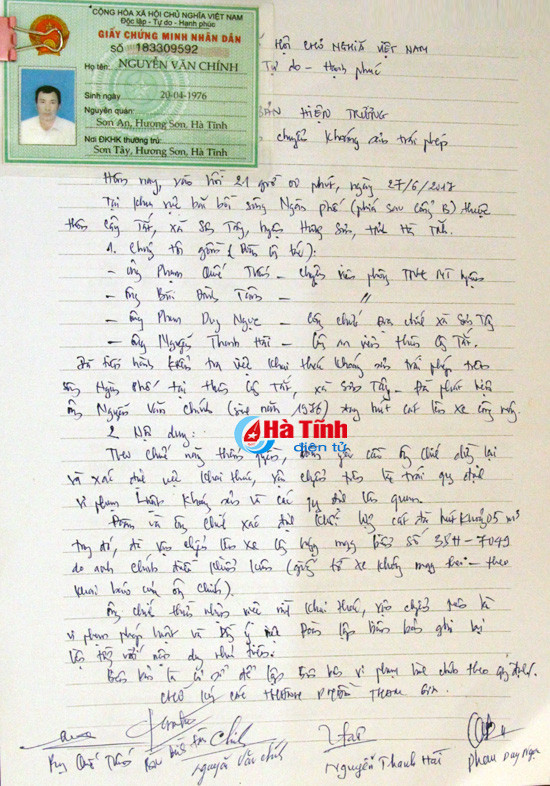 CỘNG HÒA XÃ HỘI CHỦ NGHĨA VIỆT NAM
Độc lập - Tự do - Hạnh phúc
GIẤY CHỨNG MINH NHÂN DÂN
SỐ 183309592
Họ tên: NGUYỄN VĂN CHÍNH
Sinh ngày 20-04-1976
Nguyên quán:
Sơn An, Hương Sơn, Hà Tĩnh
Nơi ĐKHK thường trú:
Sơn Tây, Hương Sơn, Hà Tĩnh
HỘI CHỦ NGHĨA VIỆT NAM
Tự do - Hạnh phúc
BẢN HIỆN TRƯỜNG
chuyển khoáng sản trái phép
Hôm nay, vào hồi 21 giờ 00 phút, ngày 27/6/2017
Tại khu vực bãi bồi sông Ngàn phố (phía sau cổng B) thuộc
thôn Cây Tắt, xã Sơn Tây, huyện Hương Sơn, tỉnh Hà Tĩnh.
1. Chúng tôi gồm
- Ông Phạm Quốc - chuyên viên phòng TNMT
- Ông Bùi Đình - //
- Ông Phan Duy Ngọc - Công chức địa chính xã Sơn Tây
- Ông Nguyễn Thanh Hải - Công an viên thôn Cây Tắt.
Đã tiến hành kiểm tra việc khai thác khoáng sản trái phép trên
sông Ngàn Phố tại thôn Cây Tắt, xã Sơn Tây. Đã phát hiện
ông Nguyễn Văn Chính (sinh năm 1976) đang hút cát lên xe công nông.
2. Nội dung:
Hà Tĩnh
điện tử
và xác định việc khai thác, vận chuyển trên là trái quy định
vi phạm Luật khoáng sản và các quy định liên quan.
Đoàn và ông Chính xác định khối lượng cát đã hút khoảng 05 m³
trong đó, đã vận chuyển lên xe mang biển số 38H-7049
do anh Chính điều khiển (giấy tờ xe không mang theo - theo
khai báo của ông Chính).
Ông Chính thừa nhận việc khai thác, vận chuyển trên là
vi phạm pháp luật và đồng ý Đoàn lập biên bản ghi lại
Biên bản là cơ sở để lập hồ sơ vi phạm hành chính theo quy định.
CHỮ KÝ CÁC THÀNH PHẦN THAM GIA.
Chính
Nguyễn Văn Chính
Nguyễn Thanh Hải
Phan Duy Ngọc